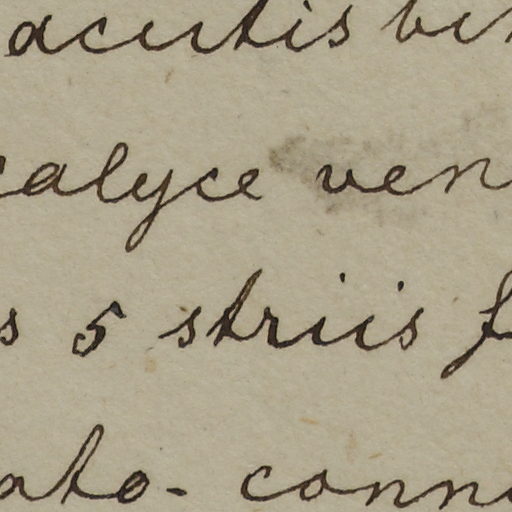 acutis
calyce ven
s 5 striis f
ato- conn